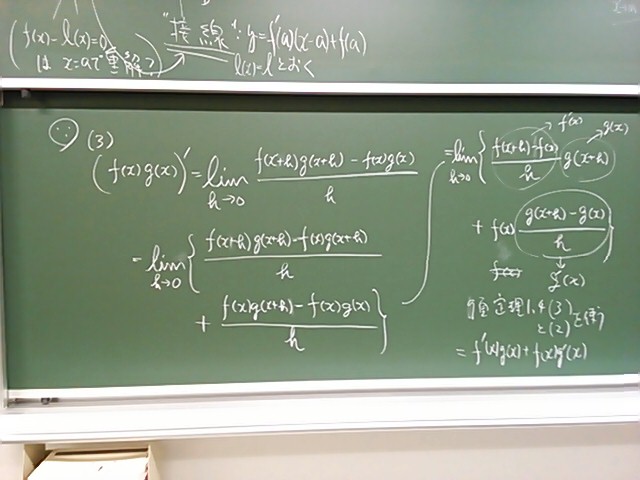 (f(x)-l(x)=0
は x=aで重解?)
"接線": y=f'(a)(x-a)+f(a)
l(x)=lとおく
∵ (3)
(f(x)g(x))' = lim h→0 f(x+h)g(x+h) - f(x)g(x) / h
= lim h→0 { f(x+h)g(x+h) - f(x)g(x+h) / h
+ f(x)g(x+h) - f(x)g(x) / h }
= lim h→0 { f(x+h)-f(x) / h g(x+h)
f'(x)
g(x)
+ f(x) g(x+h)-g(x) / h }
g'(x)
定理1.4(3)
と(2)を使う
= f'(x)g(x) + f(x)g'(x)